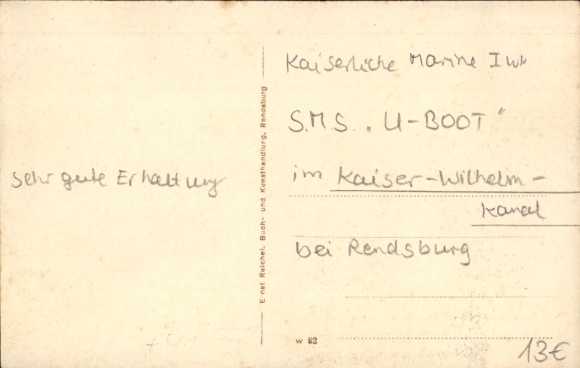 sehr gute Erhaltung
Ernst Reichel, Buch- und Kunsthandlung, Rendsburg
Kaiserliche Marine I WK
S.M.S. „U-BOOT"
im Kaiser-Wilhelm-
Kanal
bei Rendsburg
W 82
13€